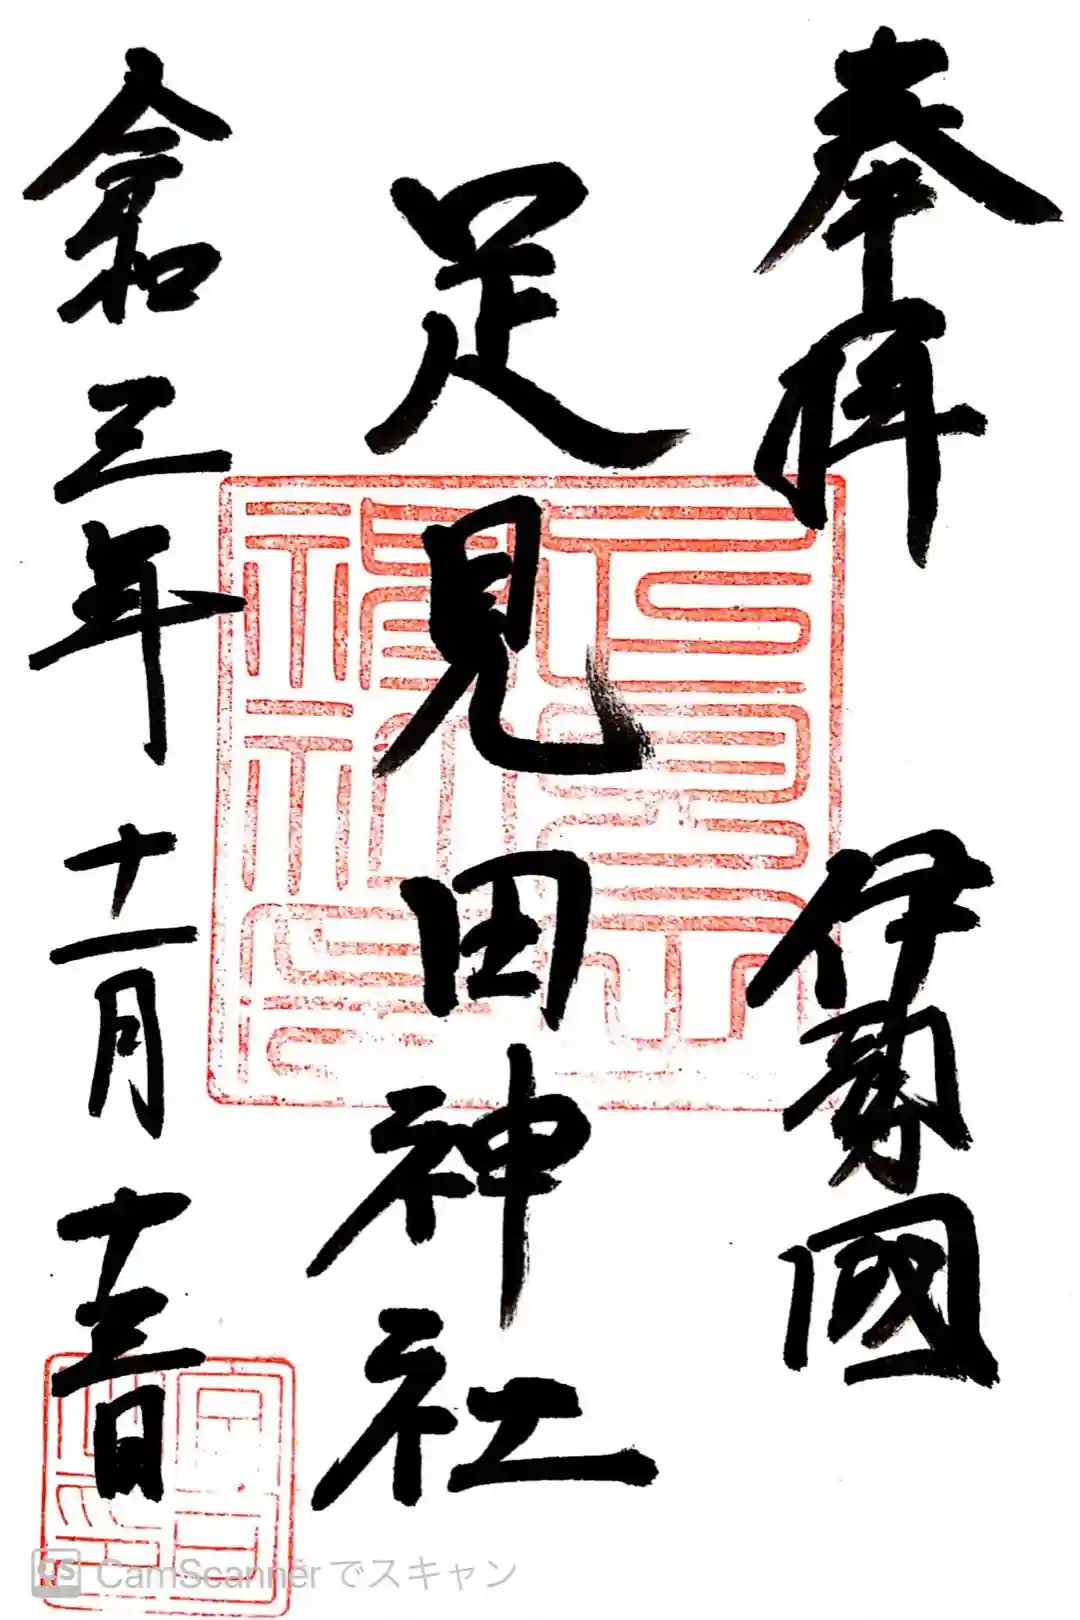 奉拝 伊勢國
足見田神社
令和三年十一月十三日
CamScannerでスキャン